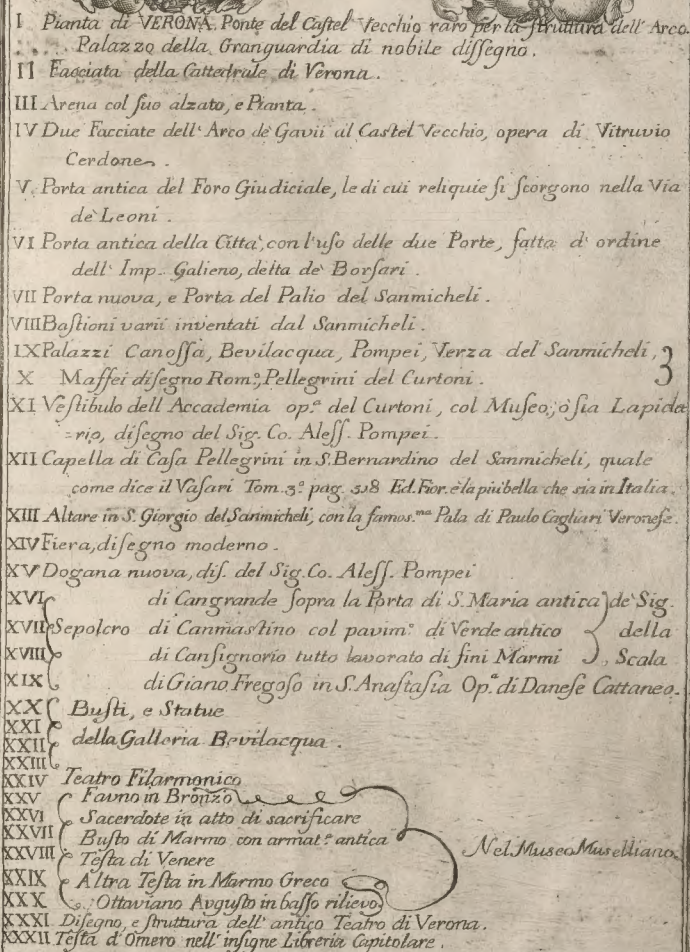 I Pianta di VERONA. Ponte del Caſtel Vecchio raro per la ſtruttura dell' Arco.
.... Palazzo della Granguardia di nobile diſſegno.
II Facciata della Cattedrale di Verona.
III Arena col ſuo alzato, e Pianta.
IV Due Facciate dell' Arco de' Gavii al Castel Vecchio, opera di Vitruvio
Cerdone.
V. Porta antica del Foro Giudiciale, le di cui reliquie ſi ſcorgono nella Via
de' Leoni.
VI Porta antica della Città, con l'uſo delle due Porte, fatta d' ordine
dell' Imp. Galieno, detta de' Borſari.
VII Porta nuova, e Porta del Palio del Sanmicheli.
VIII Baſtioni varii inventati dal Sanmicheli.
IX Palazzi Canoſſa, Bevilacqua, Pompei, Verza del Sanmicheli, 3
X Maffei diſegno Rom.º, Pellegrini del Curtoni.
XI Veſtibulo dell Accademia op.ª del Curtoni, col Muſeo, ò ſia Lapida
=rio, diſegno del Sig. Co. Aleſſ. Pompei.
XII Capella di Caſa Pellegrini in S. Bernardino del Sanmicheli, quale
come dice il Vaſari Tom. 3º pag. 518 Ed. Fior. è la piu bella che sia in Italia.
XIII Altare in S. Giorgio del Sanmicheli, con la famos.ma Pala di Paulo Cagliari Veroneſe.
XIV Fiera, diſegno moderno.
XV Dogana nuova, diſ. del Sig. Co. Aleſſ. Pompei
XVI di Cangrande ſopra la Porta di S. Maria antica de' Sig.
XVII Sepolcro di Canmaſtino col pavim.º di Verde antico della
XVIII di Canſignorio tutto lavorato di fini Marmi Scala
XIX di Giano Fregoſo in S. Anaſtaſia Op.ª di Daneſe Cattaneo.
XX Buſti, e Statue
XXI
XXII della Galleria Bevilacqua.
XXIII
XXIV Teatro Filarmonico
XXV Fauno in Bronzo
XXVI Sacerdote in atto di sacrificare
XXVII Buſto di Marmo con armat.e antica
XXVIII Teſta di Venere Nel Muſeo Muselliano.
XXIX Altra Teſta in Marmo Greco
XXX Ottaviano Avguſto in baſſo rilievo
XXXI Diſegno, e ſtruttura dell' antico Teatro di Verona.
XXXII Teſta d'Omero nell' inſigne Libreria Capitolare.